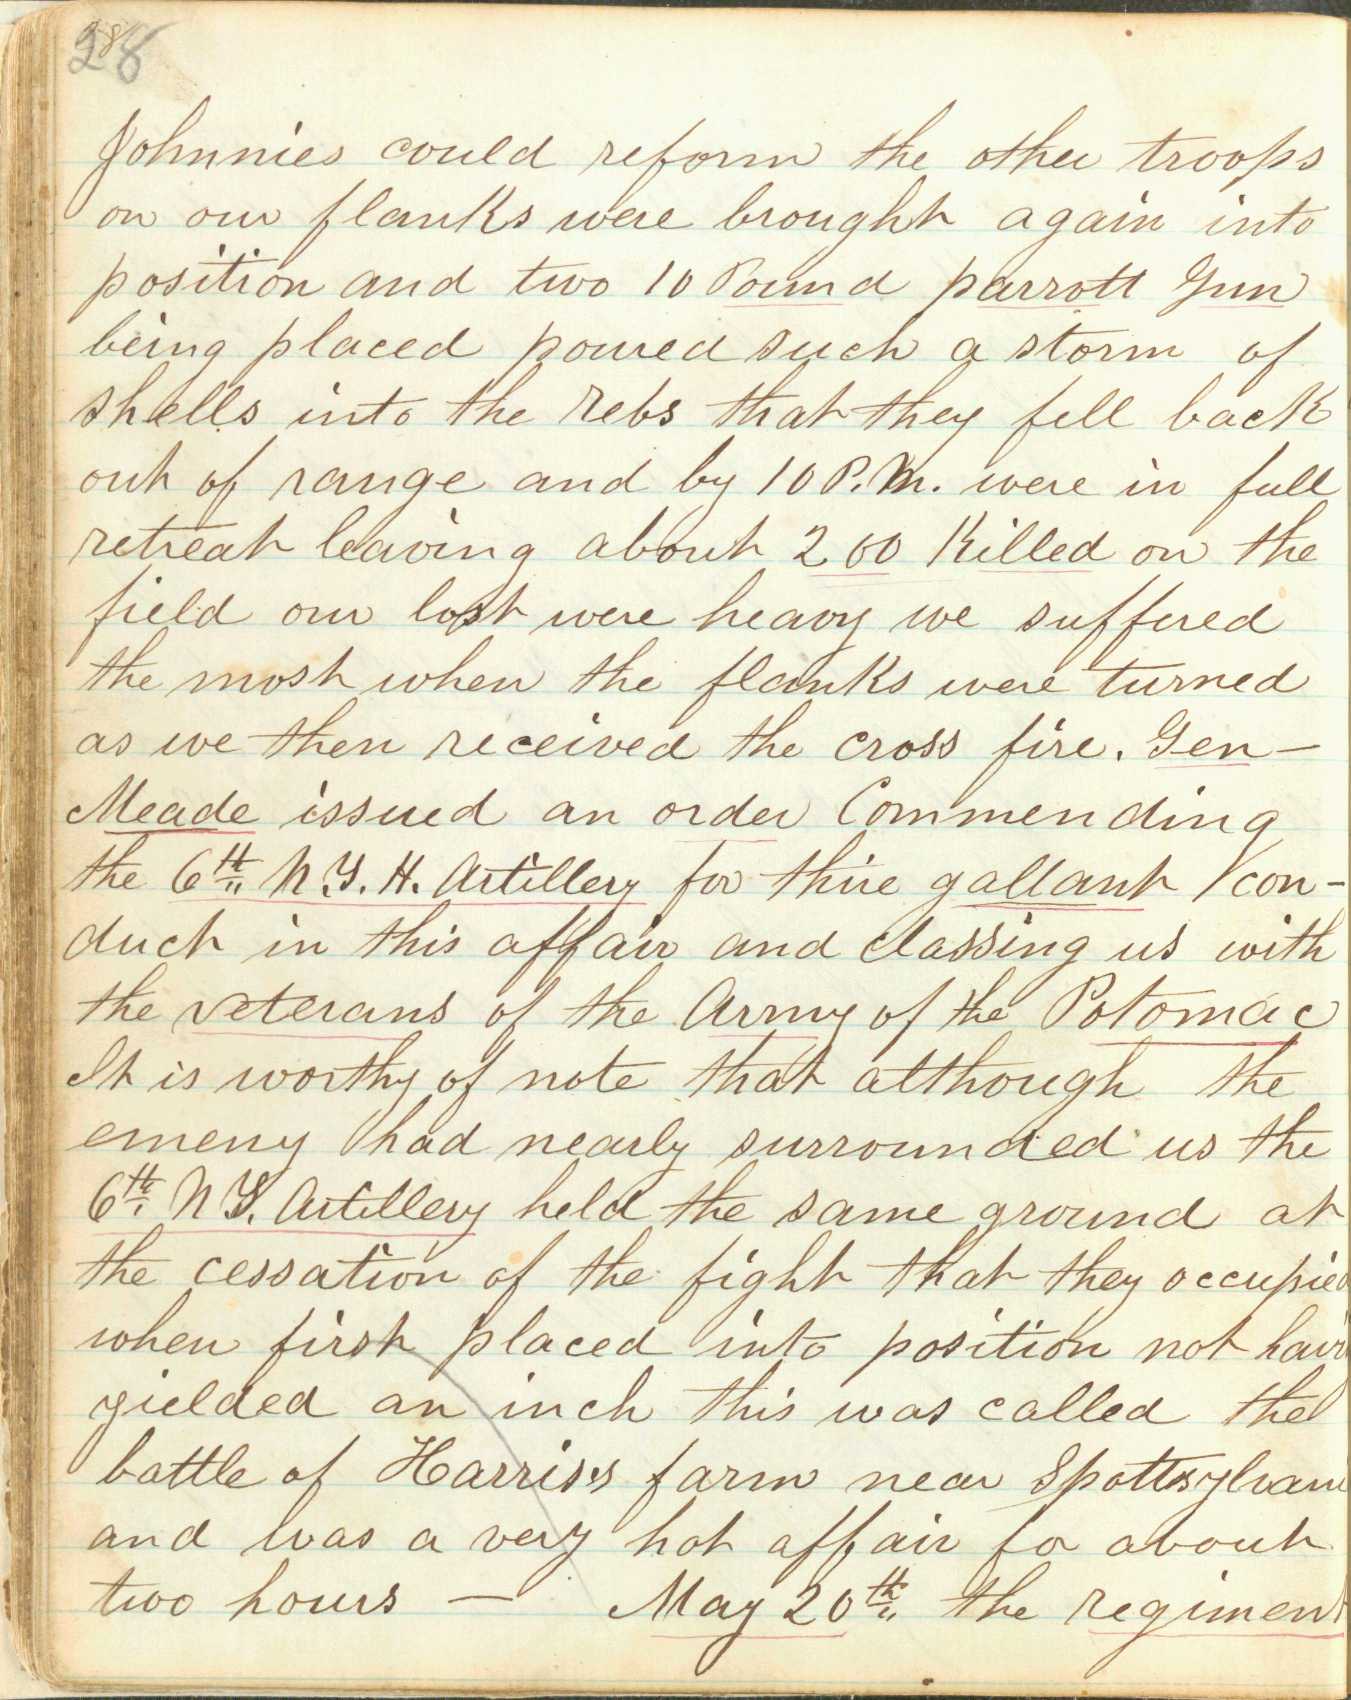 28
Johnnies could reform the other troops
on our flanks were brought again into
position and two 10 Pound parrott Gun
being placed poured such a storm of
shells into the rebs that they fell back
out of range and by 10 P.M. were in full
retreat leaving about 200 Killed on the
field our lost were heavy we suffered
the most when the flanks were turned
as we then received the cross fire. Gen-
Meade issued an order Commending
the 6th N.Y. H. Artillery for thire gallant con-
duct in this affair and classing us with
the veterans of the Army of the Potomac
It is worthy of note that although the
emeny had nearly surrounded us the
6th N.Y. Artillery held the same ground at
the cessation of the fight that they occupied
when first placed into position not havin
yielded an inch this was called the
battle of Harris's farm near Spottsylvani
and was a very hot affair for about
two hours — May 20th the regiment